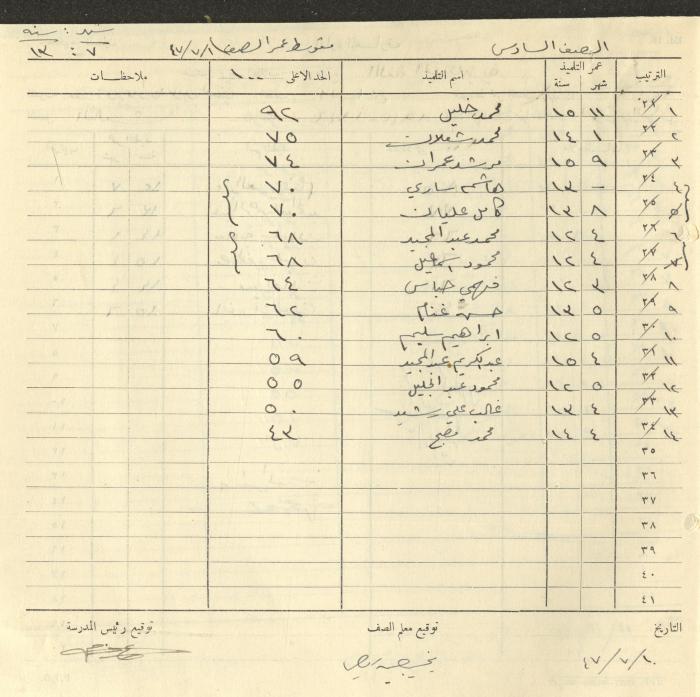 شهر : سنة
٧ : ١٣
الصف السادس متوسط عمر الصف ٤٧/٧/١
الترتيب عمر التلميذ اسم التلميذ الحد الاعلى ١٠٠ ملاحظات
شهر سنة
١ ٢١ ١١ ١٥ محمد خليل ٩٢
٢ ٢٢ ١ ١٤ محمد شعلان ٧٥
٣ ٢٣ ٩ ١٥ مرشد عمران ٧٤
٤ ٢٤ – ١٣ هاشم ساري ٧٠
٥ ٢٥ ٨ ١٣ كامل عليان ٧٠
٦ ٢٦ ٤ ١٢ محمد عبد المجيد ٦٨
٧ ٢٧ ٤ ١٢ محمود اسماعيل ٦٨
٨ ٢٨ ٣ ١٢ فهمي ٦٤
٩ ٢٩ ٥ ١٣ حسن غنام ٦٢
١٠ ٣٠ ٥ ١٢ ابراهيم سليم ٦٠
١١ ٣١ ٤ ١٥ عبد الكريم عبد المجيد ٥٩
١٢ ٣٢ ٥ ١٢ محمود عبد الجليل ٥٥
١٣ ٣٣ ٤ ١٣ غالب علي رشيد ٥٠
١٤ ٣٤ ٤ ١٤ محمد مصلح ٤٣
٣٥
٣٦
٣٧
٣٨
٣٩
٤٠
٤١
التاريخ توقيع معلم الصف توقيع رئيس المدرسة
٤٧/٧/١٠